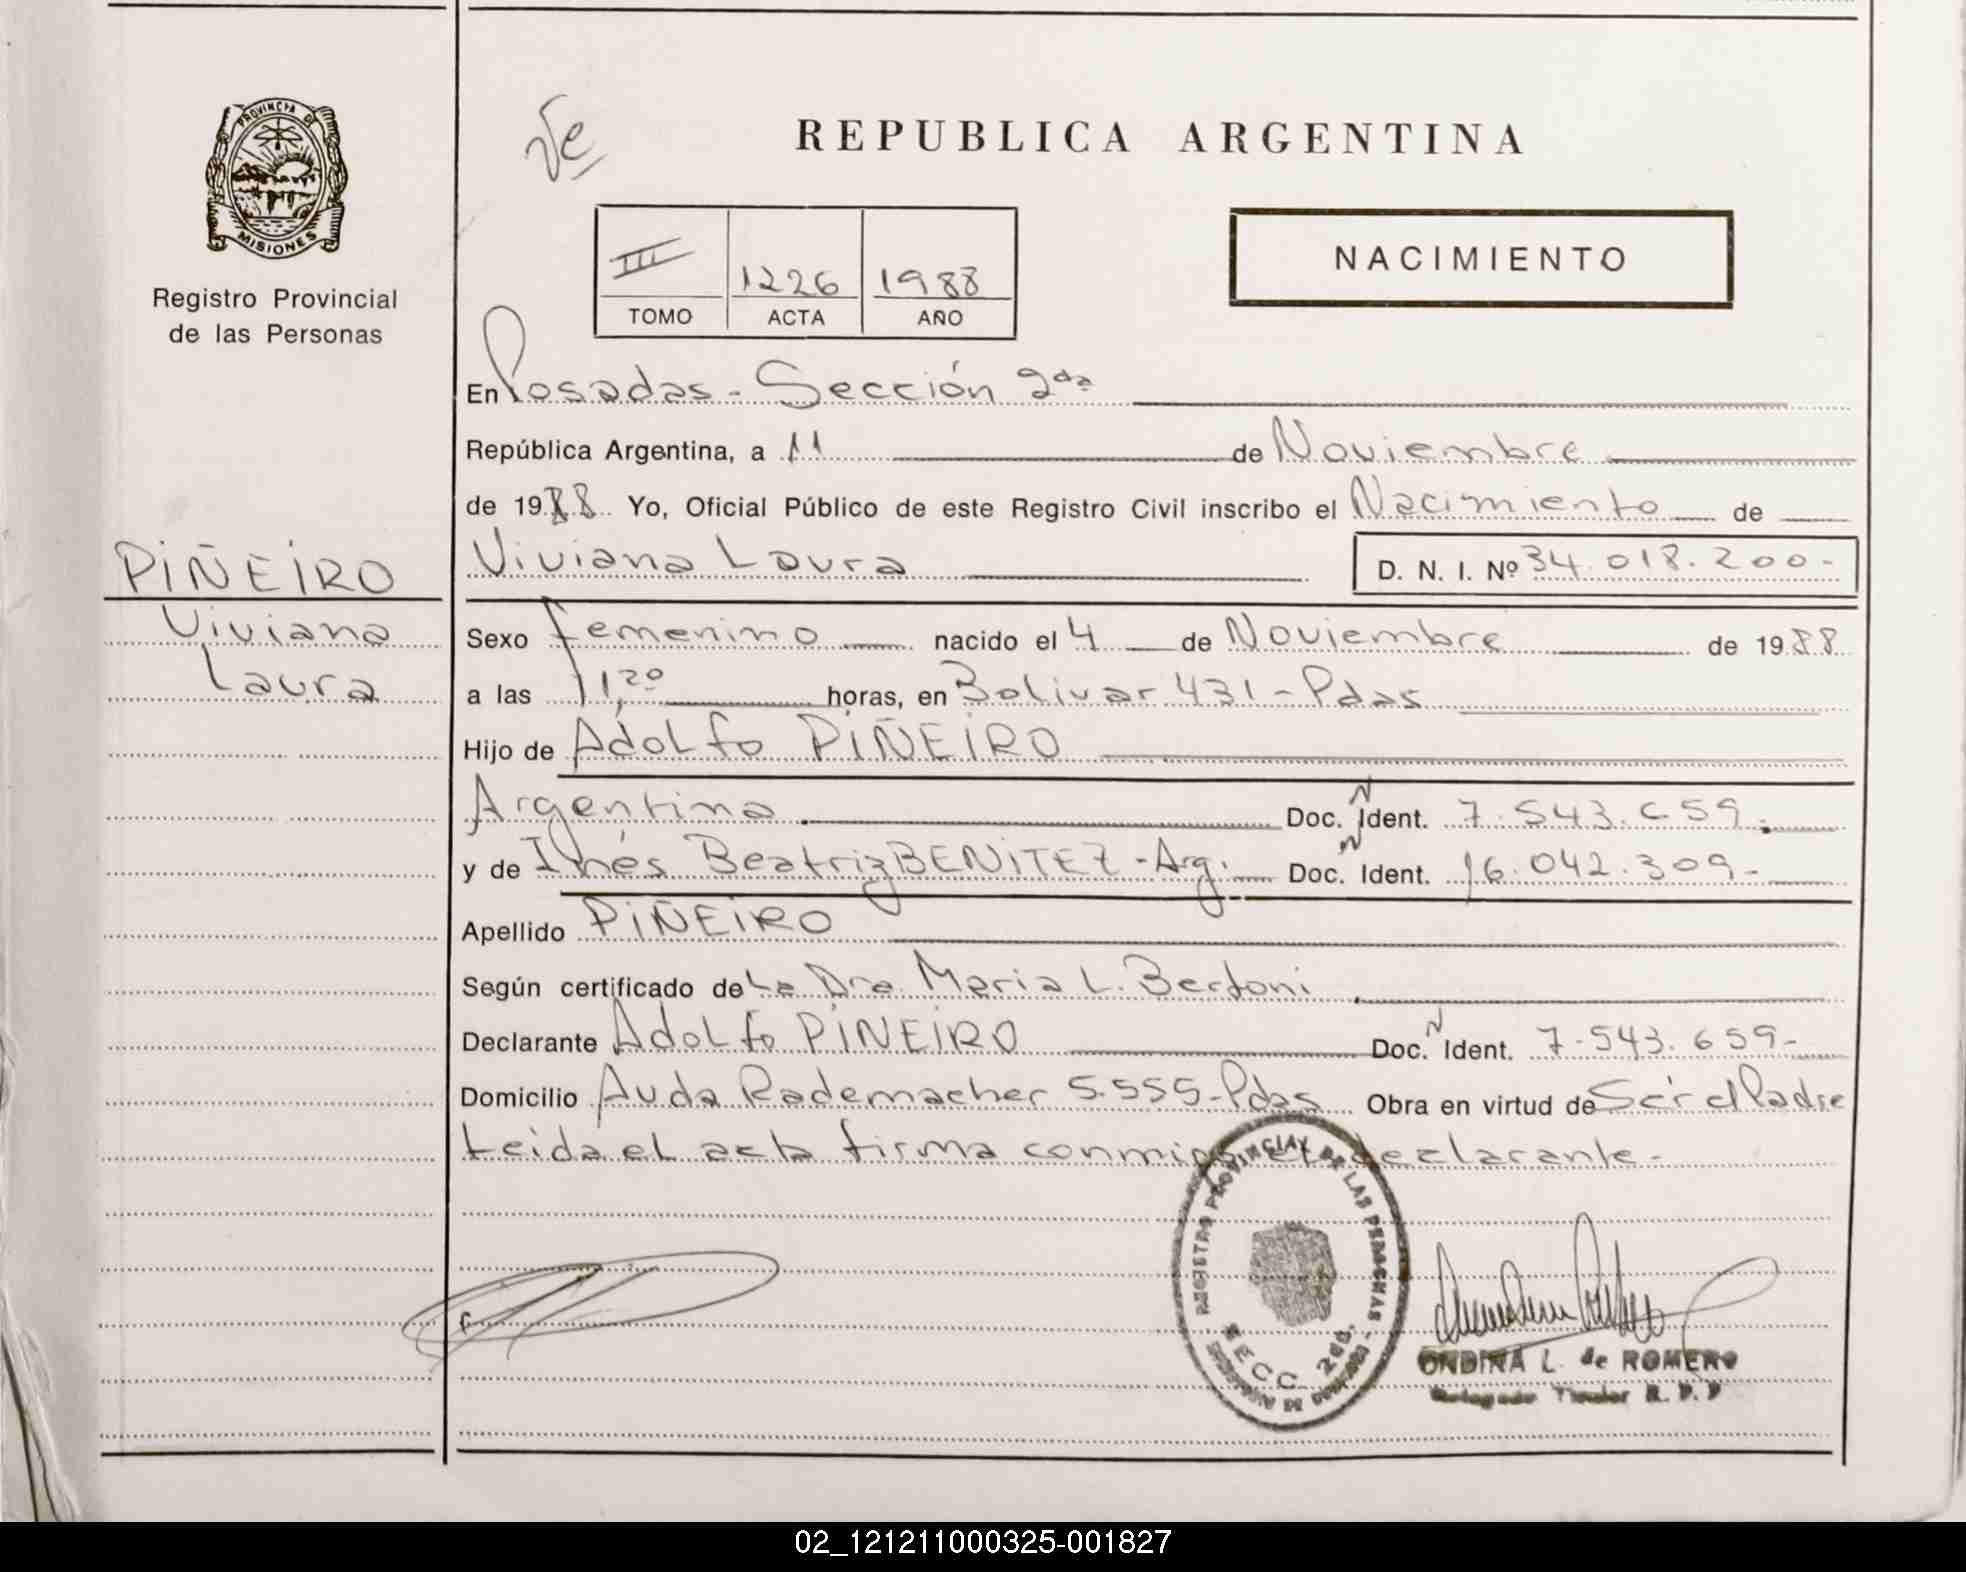 PROVINCIA DE
MISIONES
Registro Provincial
de las Personas
REPUBLICA ARGENTINA
NACIMIENTO
III 1226 1988
TOMO ACTA AÑO
En Posadas - Sección 2da
República Argentina, a 11 de Noviembre
de 1988 Yo, Oficial Público de este Registro Civil inscribo el Nacimiento de
PIÑEIRO
Viviana Laura D. N. I. Nº 34.018.200-
Viviana
Laura
Sexo femenino nacido el 4 de Noviembre de 1988
a las 11,20 horas, en Bolivar 431 - Pdas
Hijo de Adolfo PIÑEIRO
Argentina Doc. N Ident. 7.543.659.
y de Inés Beatriz BENITEZ - Arg. Doc. N Ident. 16.042.309-
Apellido PIÑEIRO
Según certificado de La Dra. Maria L. Bertoni
Declarante Adolfo PIÑEIRO Doc. N Ident. 7.543.659-
Domicilio Avda Rademacher 5.555-Pdas Obra en virtud de Ser el Padre
Leida el acta firma conmigo el declarante-
REGISTRO PROVINCIAL DE LAS PERSONAS
SECC. 2da.
ONDINA L. de ROMERO
Delegado Titular R. P. P
02_121211000325-001827